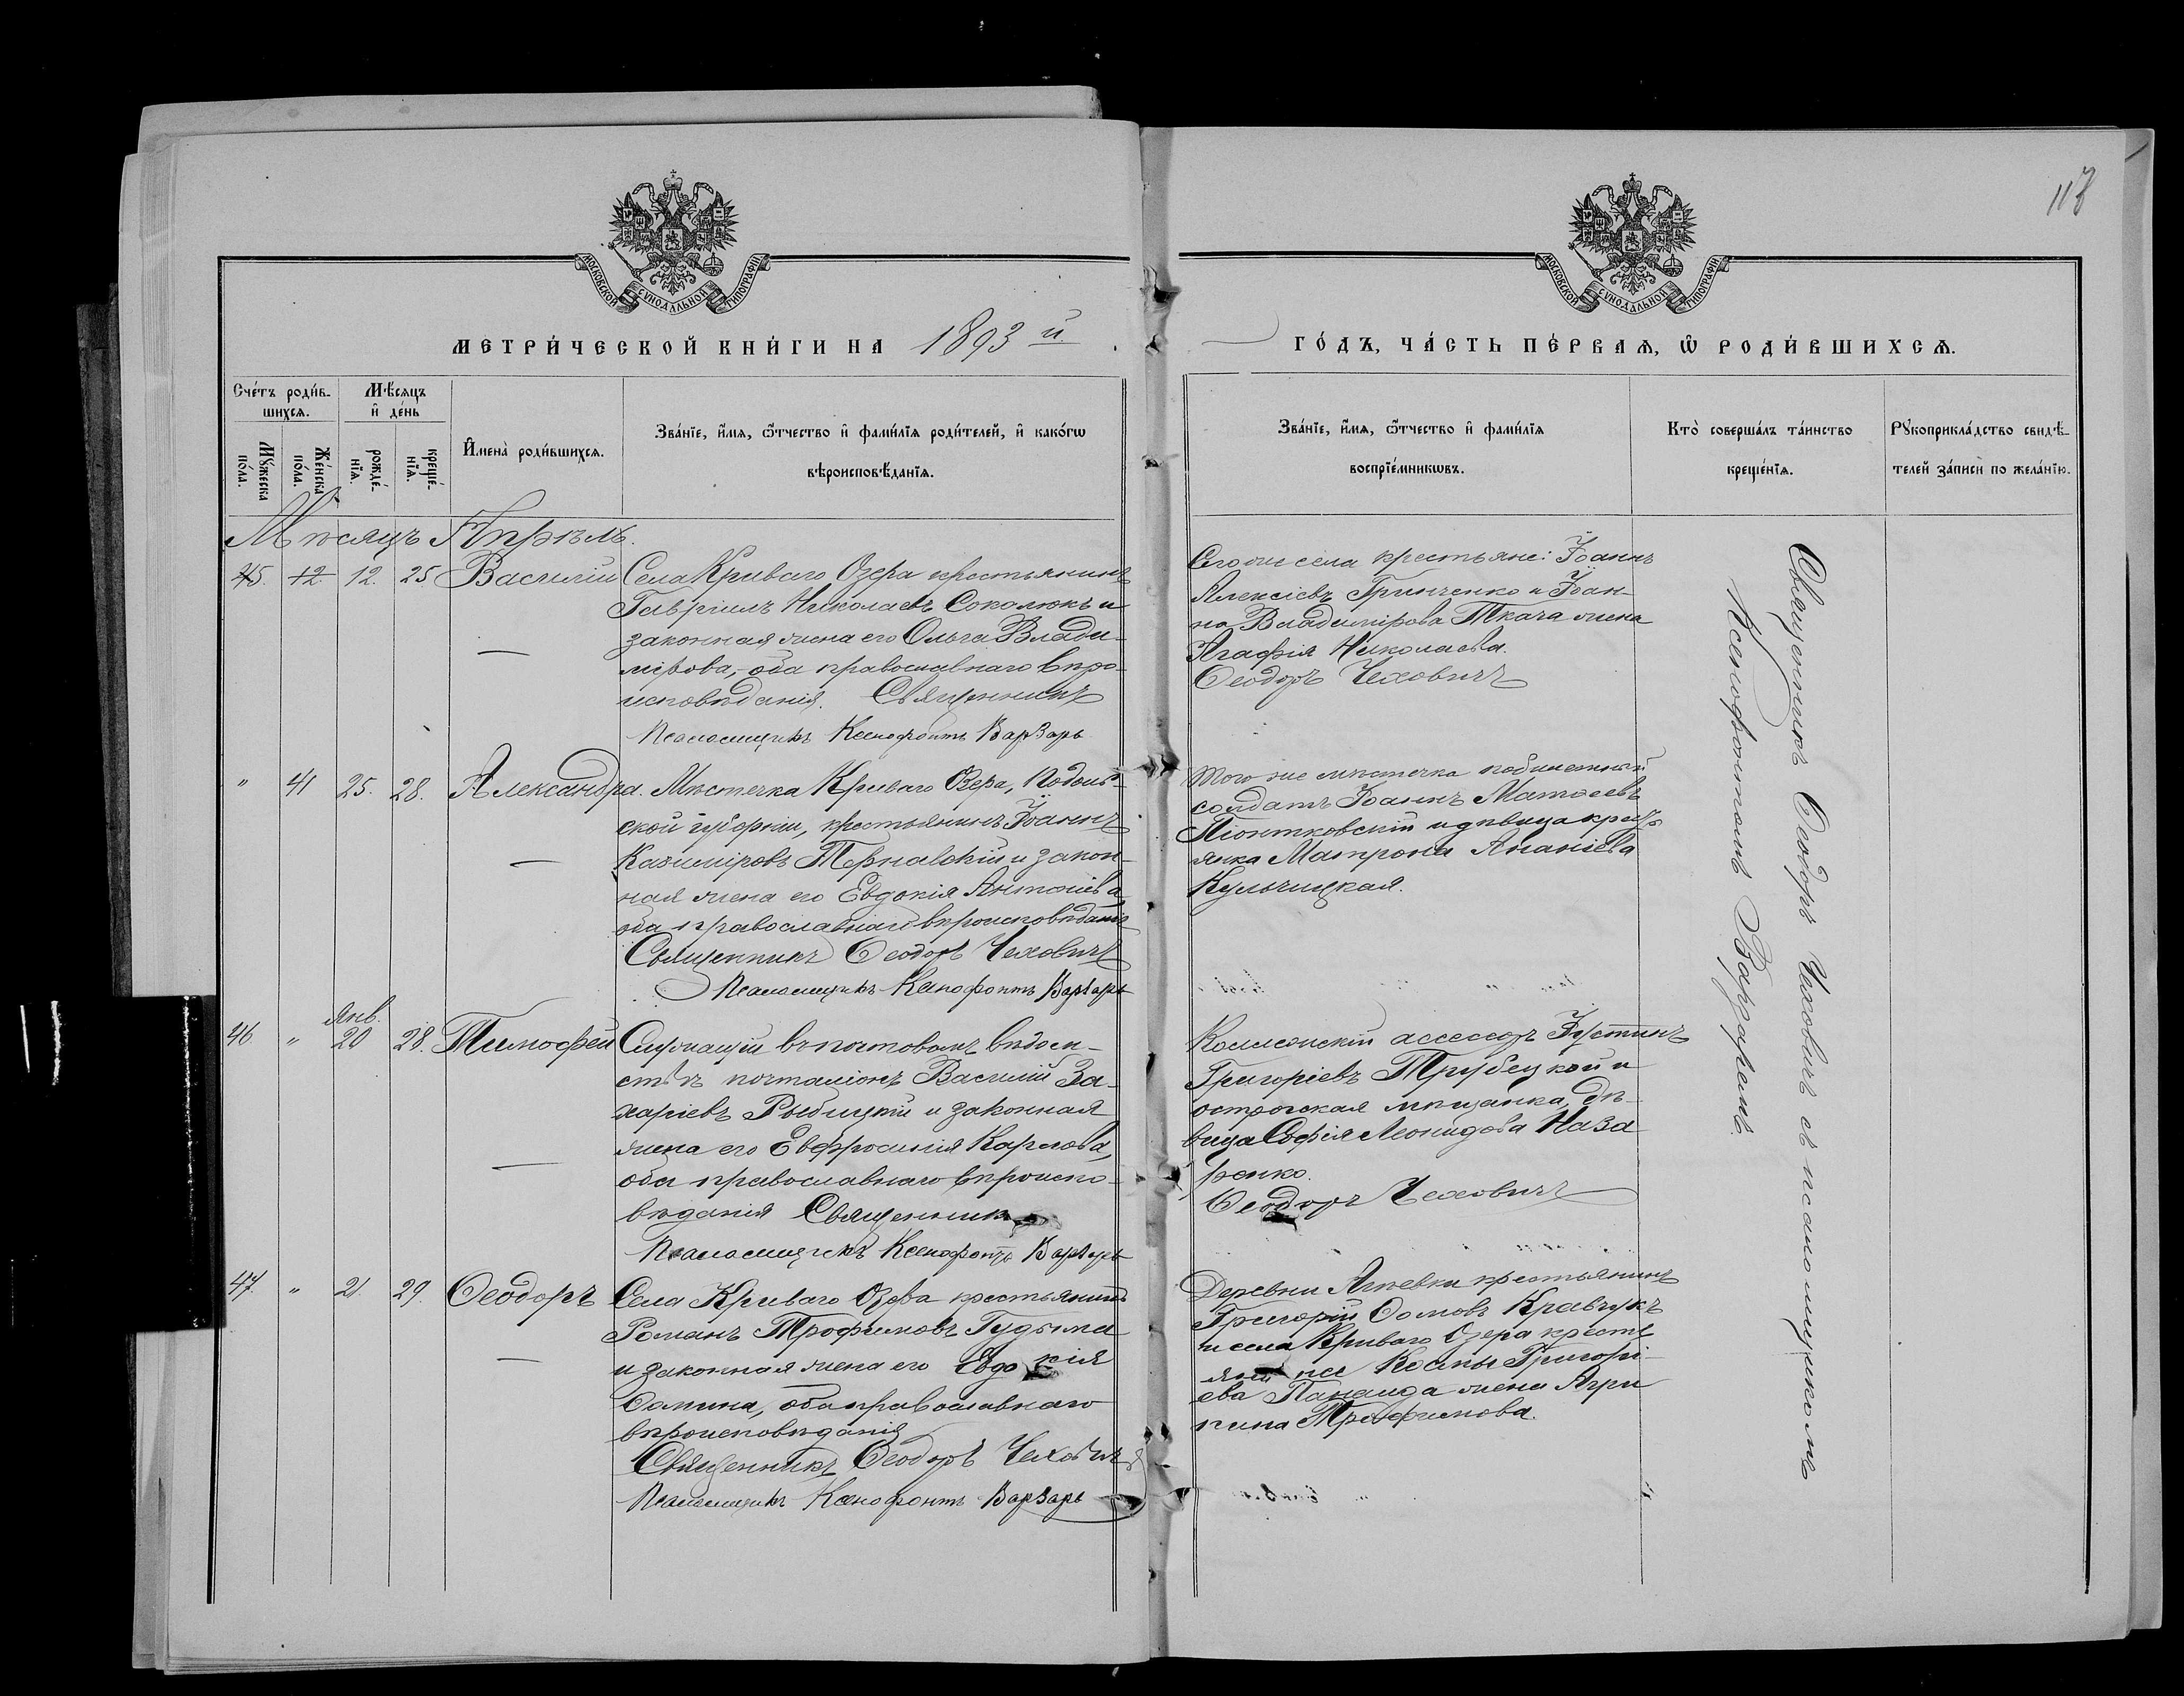 118
МОСКОВСКОЙ СѴНОДАЛЬНОЙ ТИПОГРАФІИ
МОСКОВСКОЙ СѴНОДАЛЬНОЙ ТИПОГРАФІИ
МЕТРИ́ЧЕСКОЙ КНИ́ГИ НА 1893 й.
ГО́ДЪ, ЧА́СТЬ ПЕ́РВАѦ, Ѽ РОДИ́ВШИХСѦ.
Сче́тъ роди́в-
шихсѧ.
Мꙋ́жеска
по́ла.
Же́нска
по́ла.
Мѣ́сѧцъ
и҆ де́нь
рожде́-
нїѧ.
креще́-
нїѧ.
И҆мена̀ роди́вшихсѧ.
Зва́нїе, и҆́мѧ, ѻ҆́тчество и҆ фами́лїѧ роди́телей, и҆ како́гѡ
вѣроисповѣ́данїѧ.
Зва́нїе, и҆́мѧ, ѻ҆́тчество и҆ фами́лїѧ
воспрїе́мникѡвъ.
Кто̀ соверша́лъ та́инство
креще́нїѧ.
Рꙋкоприкла́дство свидѣ́-
телей за́писи по жела́нїю.
Мѣсяцъ Апрѣль.
45. 12 12. 25 Василій
Села Криваго Озера крестьянинъ
Гавріилъ Николаевъ Соколюкъ и
законная жена его Ольга Влади-
мірова, оба православнаго вѣро-
исповѣданія. Священникъ
Псаломщикъ Ксенофонтъ Варзарь
Того же села крестьяне: Іоаннъ
Алексіевъ Гринченко и Іоан-
на Владимірова Ткача жена
Агафія Николаева.
Ѳеодоръ Чеховичъ
" 41 25. 28. Александра.
Мѣстечка Криваго Озера, Подоль-
ской губерніи, крестьянинъ Іоаннъ
Казиміровъ Тернавскій и закон-
ная жена его Евдокія Антоніева
оба православнаго вѣроисповѣданія
Священникъ Ѳеодоръ Чеховичъ
Псаломщикъ Ксенофонтъ Варзарь
Того же мѣстечка
солдатъ Іоаннъ Матѳеевъ
Піонтковскій и дѣвица крест-
янка Матрона Ананіева
Кульчицкая.
46. " Янв. 20 28. Тимофей
Служащій въ почтовомъ вѣдом-
ствѣ почталіонъ Василій За-
харіевъ Рыбицкій и законная
жена его Евфросинія Карпова,
оба православнаго вѣроиспо-
вѣданія Священникъ
Псаломщикъ Ксенофонтъ Варзарь
Коллежскій ассесоръ Іустинъ
Григоріевъ Трубецкой и
острожская мѣщанка, дѣ-
вица Софія Леонидова Наза
ренко.
Ѳеодоръ Чеховичъ
47. " 21. 29. Ѳеодоръ
Села Криваго Озера крестьянинъ
Романъ Трофимовъ Гудыма
и законная жена его Евдокія
Ѳомина, оба православнаго
вѣроисповѣданія
Священникъ Ѳеодоръ Чеховичъ
Псаломщикъ Ксенофонтъ Варзарь
Деревни крестьянинъ
Григорій Ѳомовъ Кравчукъ
и села Криваго Озера кресть
Космы Григорі-
ева жена Агри
пина Трофимова.
Священникъ Ѳеодоръ Чеховичъ съ псаломщикомъ
Ксенофонтомъ Варзаремъ.